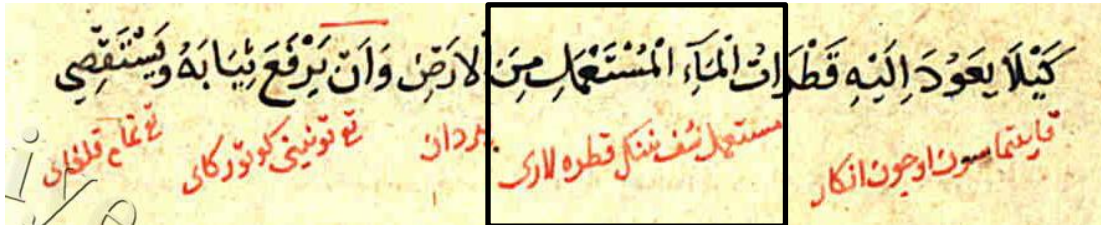 كَيْلَا يَعُودَ اِلَيْهِ قَطْرَاتُ الْمَآءِ الْمُسْتَعْمَلِ مِنَ الْاَرْضِ وَاَنْ يَرْفَعَ ثِيَابَهُ وَيَسْتَقْصِي
قايتماسون اوچون انكار مستعمل سُف ننك قطره لارى يردان تو تونينى كوتوركاى تمام قلغاى